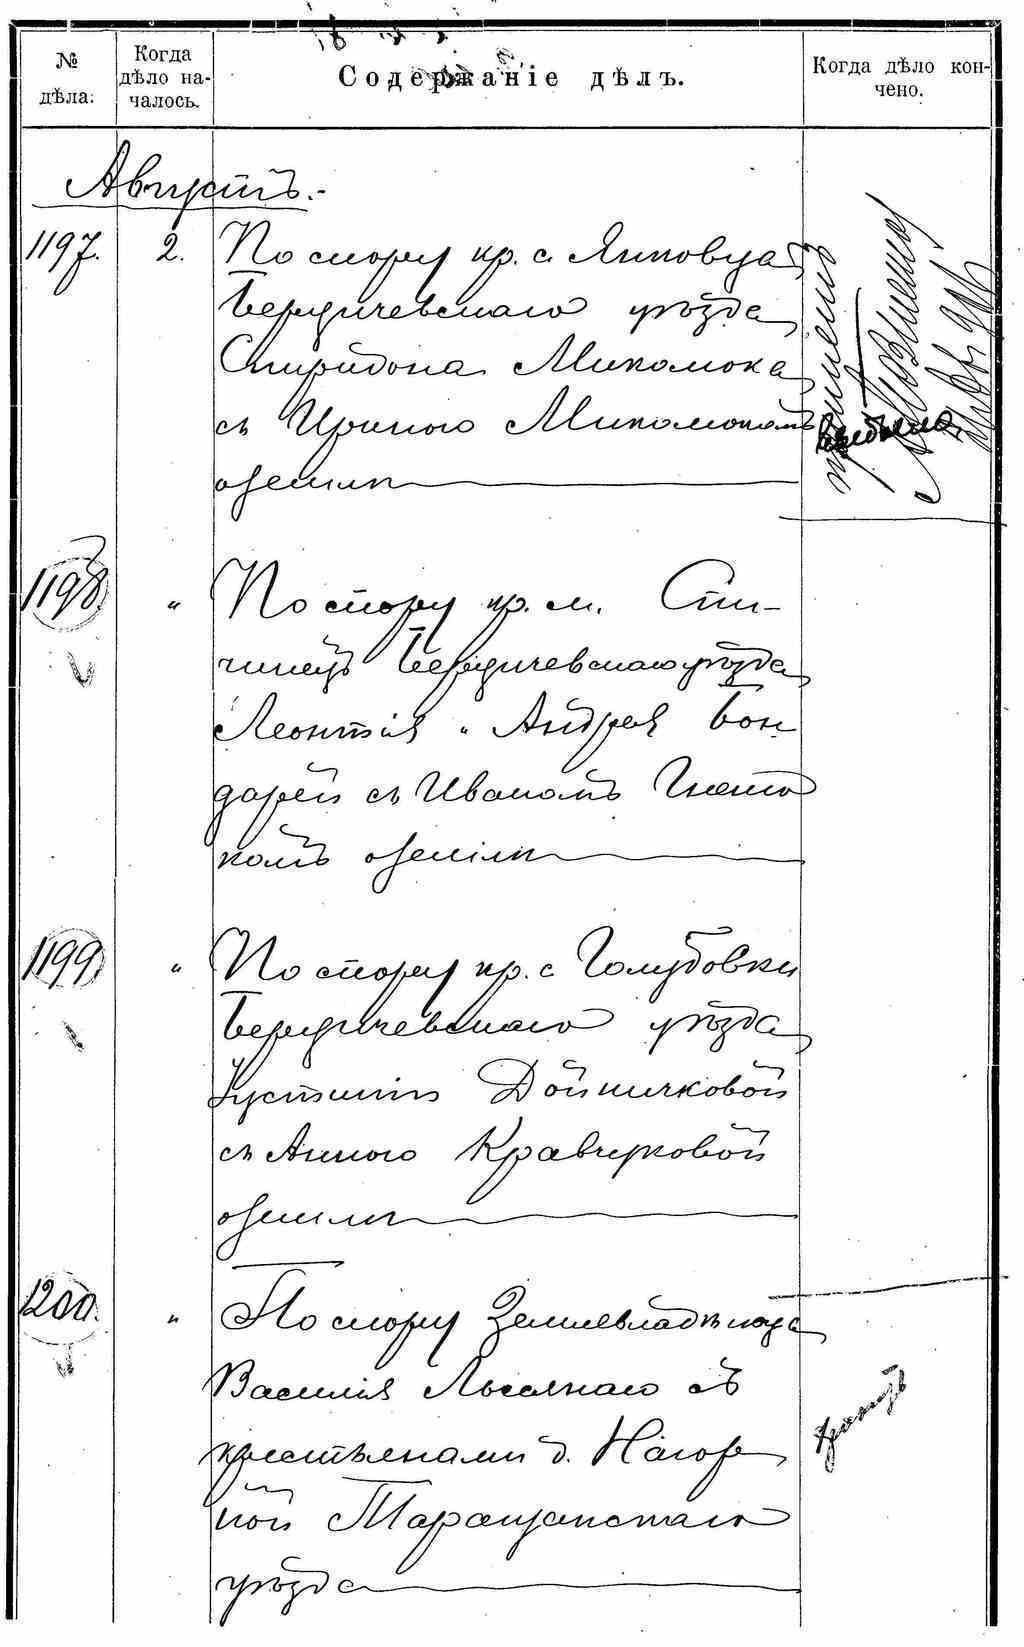 № дѣла.
Когда дѣло на-
чалось.
Содержаніе дѣлъ.
Когда дѣло кон-
чено.
Августъ.
1197. 2. По спору кр. с. Янковца
Бердичевскаго уѣзда
Спиридона
съ Ириною
о землѣ
1198 " По спору кр. м. Спи-
чинецъ Бердичевскаго уѣзда
Леонтія и Андрея Бон
дарей съ Иваномъ Гнато
комъ о землѣ
1199 " По спору кр. с Голубовки
Бердичевскаго уѣзда
Устиніи Дойничковой
съ Анною Кравчуковой
о землѣ
1200. " По спору Землевладѣльца
Василія Лысянаго съ
крестьянами д. Нагор
ной Таращанскаго
уѣзда